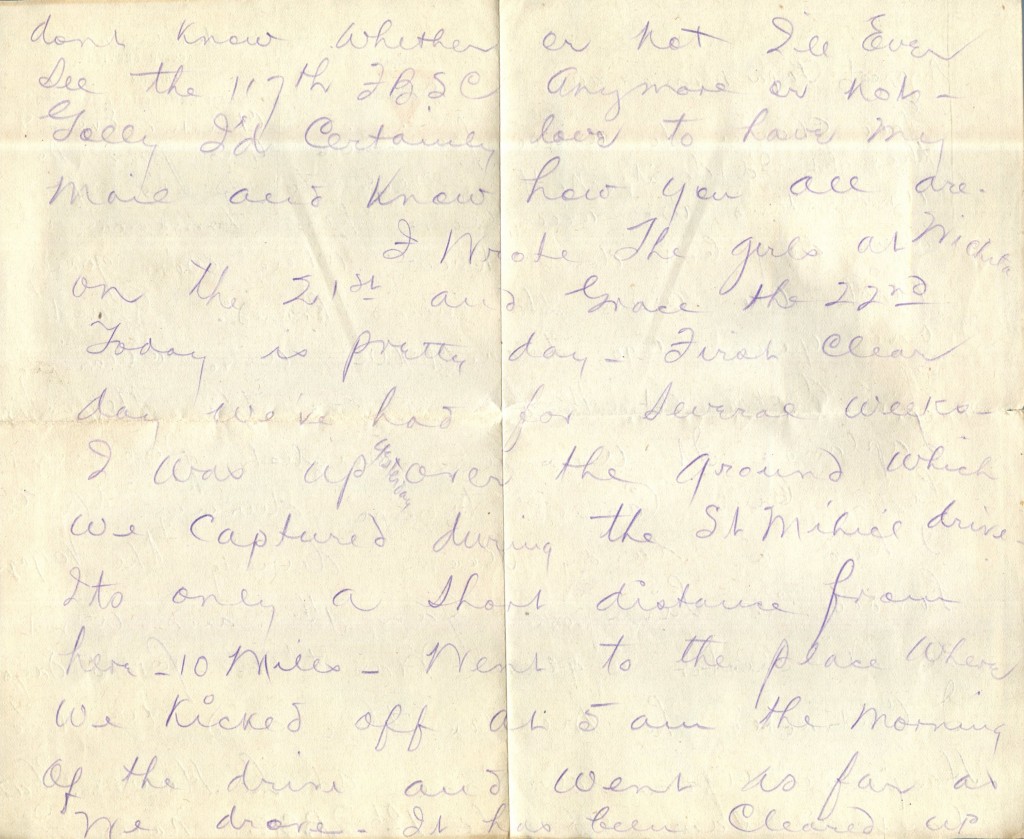 dont know whether or not I'll Ever
see the 117th F B S C Anymore or not -
Golly I'd Certainly love to have my
Mail and Know how you all are.
I Wrote The girls at Wichita
on the 21st and Grace the 22nd
Today is pretty day - First Clear
day we've had for several weeks -
I was up yesterday over the ground which
we Captured during the St Mihiel drive.
Its only a short distance from
here - 10 Miles - Went to the place Where
We Kicked off at 5 am the Morning
Of the drive and went as far as
We drove - It has been Cleared up